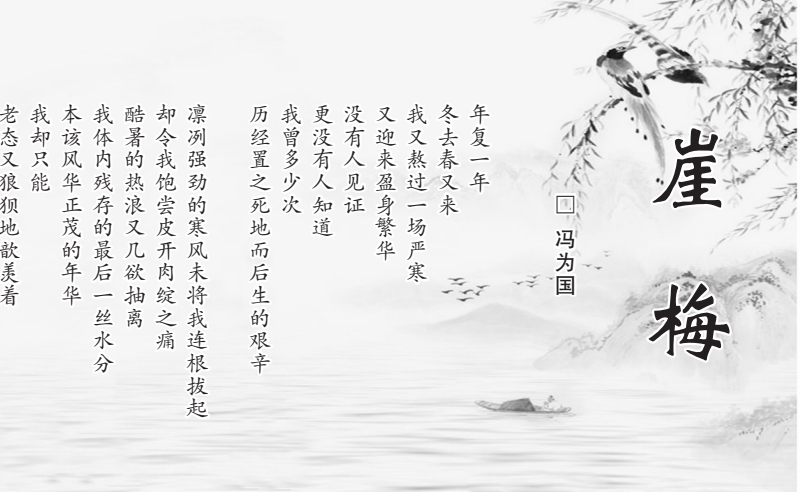 崖梅
□ 冯为国
年复一年
冬去春又来
我又熬过一场严寒
又迎来盈身繁华
没有人见证
更没有人知道
我曾多少次
历经置之死地而后生的艰辛
凛冽强劲的寒风未将我连根拔起
却令我饱尝皮开肉绽之痛
酷暑的热浪又几欲抽离
我体内残存的最后一丝水分
本该风华正茂的年华
我却只能
老态又狼狈地歆羡着